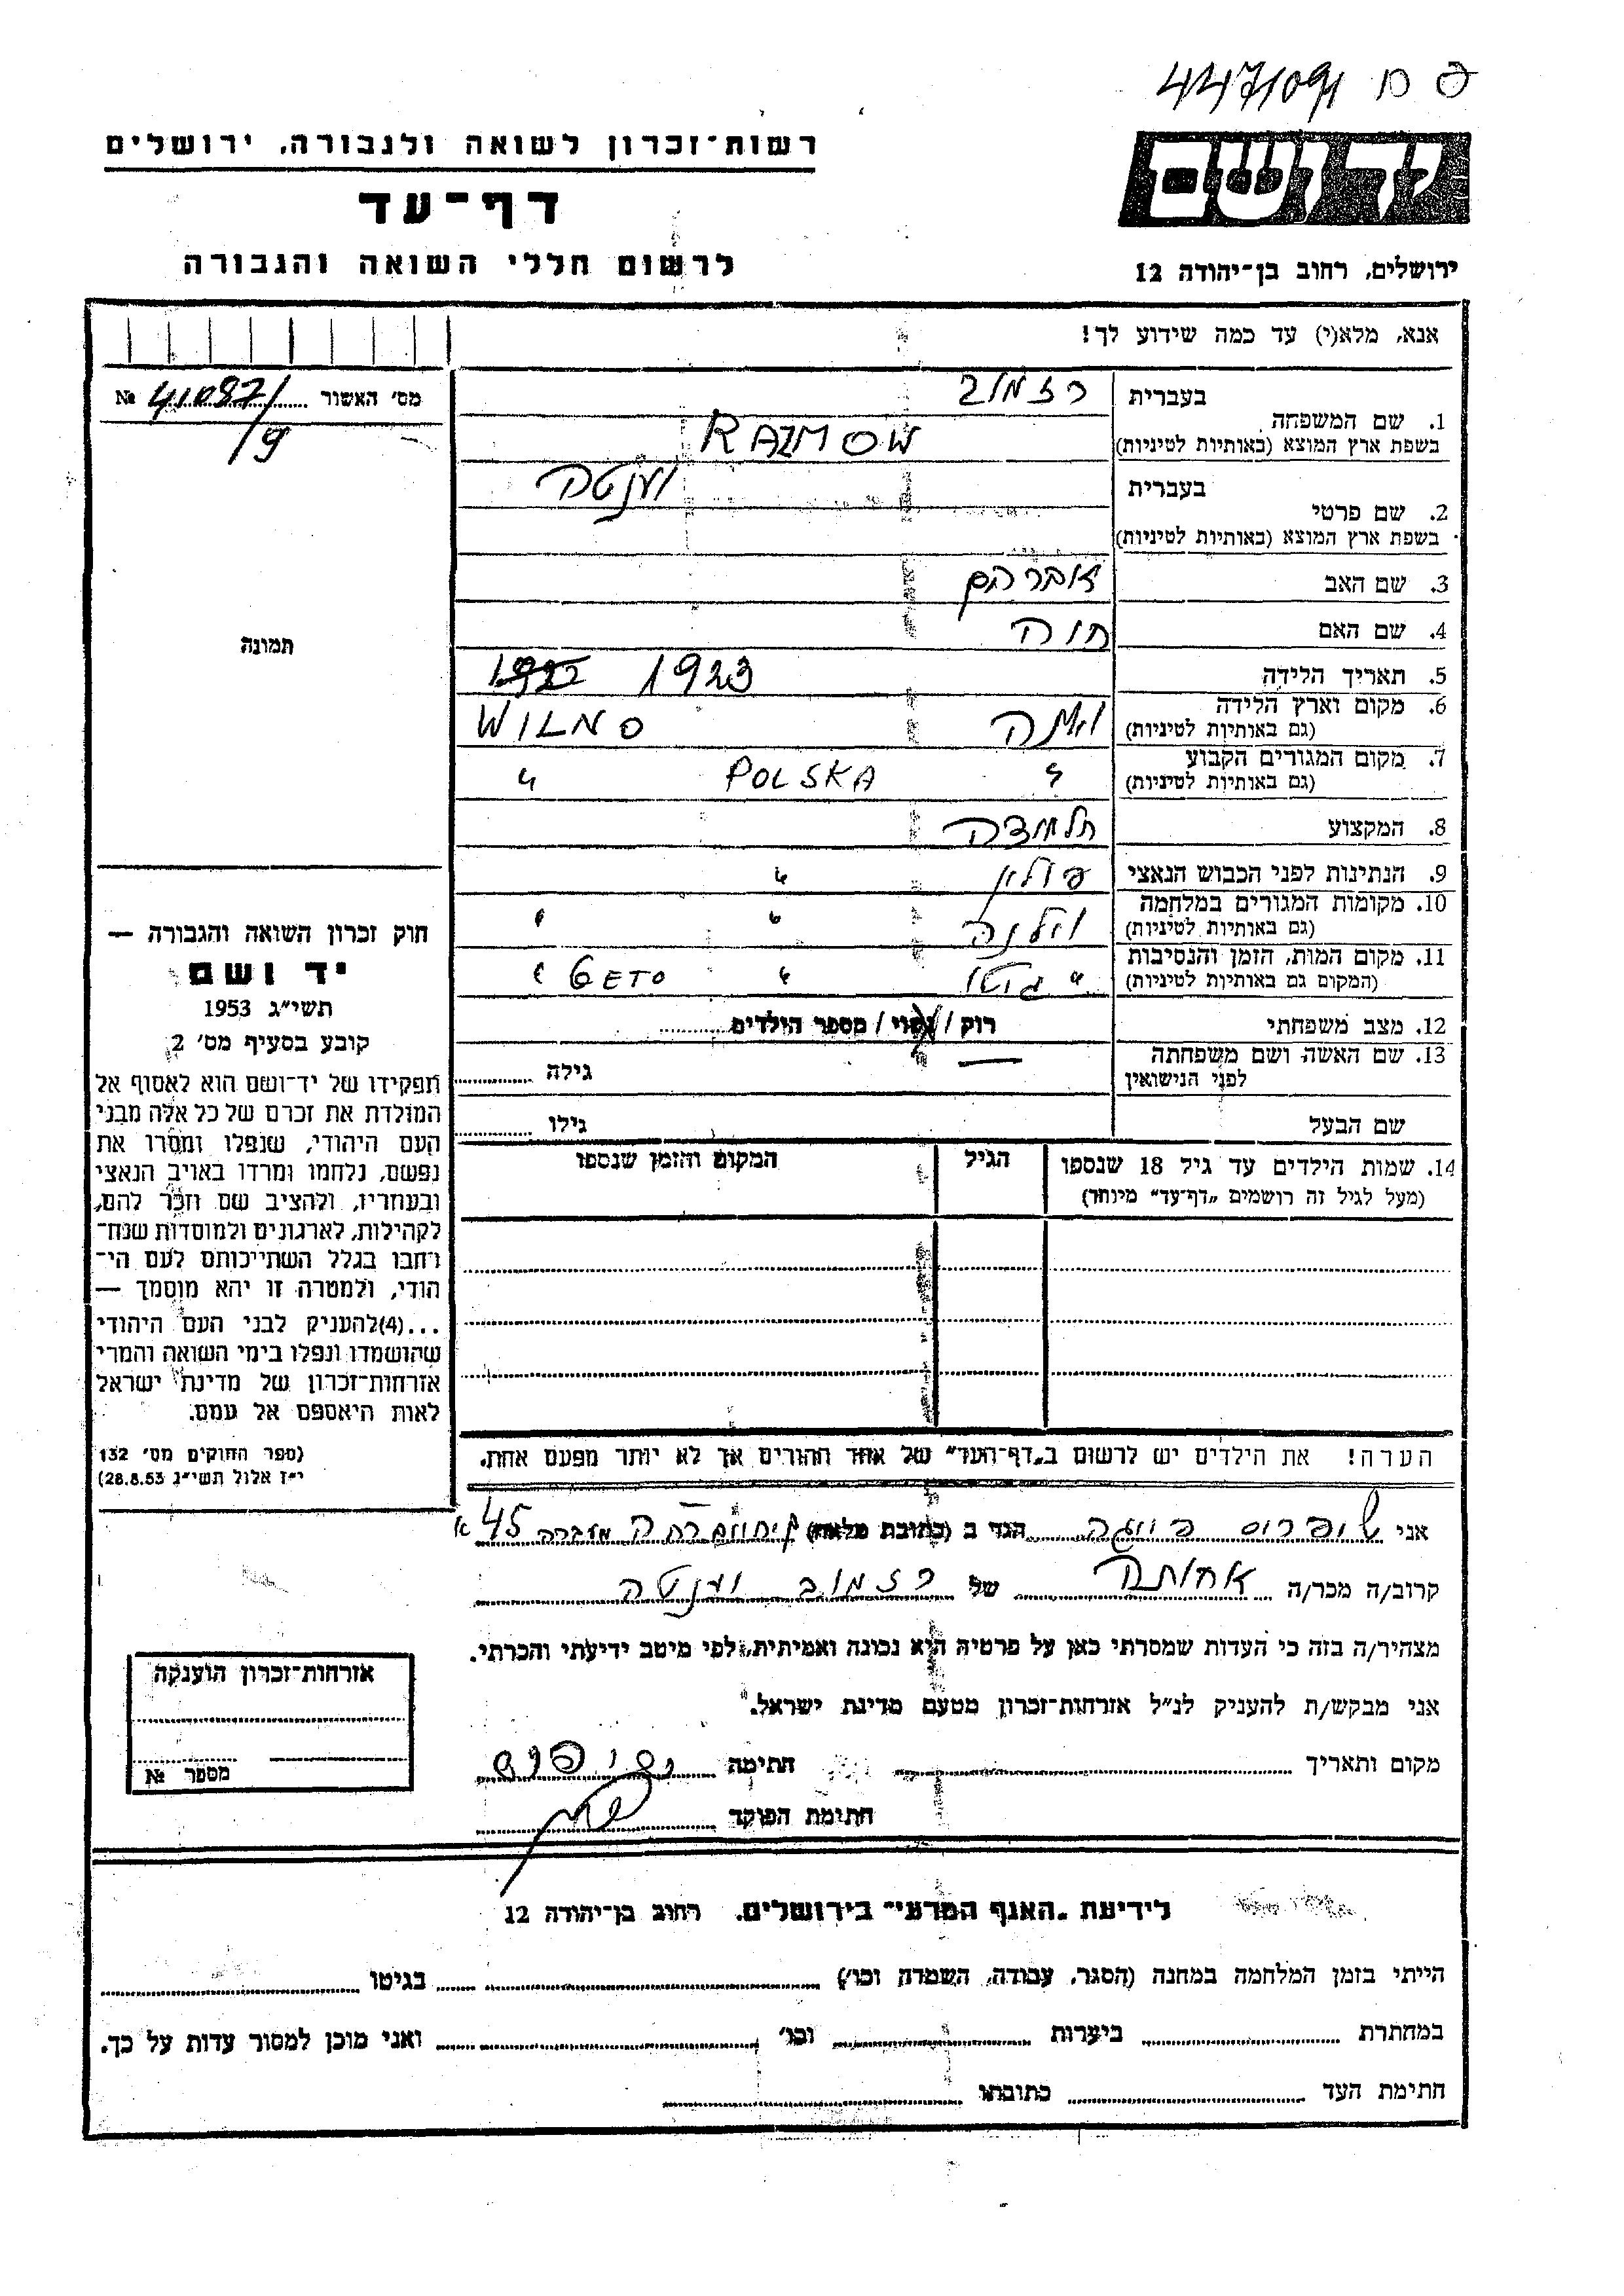 447109/
רשות־זכרון לשואה ולגבורה, ירושלים
דף־עד
לרשום חללי השואה והגבורה
יד ושם
ירושלים, רחוב בן־יהודה 12
אנא, מלא(י) עד כמה שידוע לך!
מס׳ האשור № 41087/
/9
תמונה
1. שם המשפחה
בעברית רזמוב
בשפת ארץ המוצא (באותיות לטיניות) RAZMOW
2. שם פרטי
בעברית
בשפת ארץ המוצא (באותיות לטיניות)
3. שם האב אברהם
4. שם האם חוה
5. תאריך הלידה 1923 1922
6. מקום וארץ הלידה
(גם באותיות לטיניות) WILNO
7. מקום המגורים הקבוע
(גם באותיות לטיניות) " POLSKA "
8. המקצוע תלמידה
9. הנתינות לפני הכבוש הנאצי פולין "
10. מקומות המגורים במלחמה
(גם באותיות לטיניות) וילנה " "
11. מקום המות, הזמן והנסיבות
(המקום גם באותיות לטיניות) " גיטו " GETO "
12. מצב משפחתי רוק / נשוי / מספר הילדים
13. שם האשה ושם משפחתה
לפני הנישואין — גילה
שם הבעל גילו
14. שמות הילדים עד גיל 18 שנספו הגיל המקום והזמן שנספו
(מעל לגיל זה רושמים „דף־עד" מיוחד)
חוק זכרון השואה והגבורה —
יד ושם
תשי״ג 1953
קובע בסעיף מס׳ 2
תפקידו של יד־ושם הוא לאסוף אל
המולדת את זכרם של כל אלה מבני
העם היהודי, שנפלו ומסרו את
נפשם, נלחמו ומרדו באויב הנאצי
ובעוזריו, ולהציב שם וזכר להם,
לקהילות, לארגונים ולמוסדות שנח־
רחבו בגלל השתייכותם לעם הי־
הודי, ולמטרה זו יהא מוסמך —
...(4)להעניק לבני העם היהודי
שהושמדו ונפלו בימי השואה והמרי
אזרחות־זכרון של מדינת ישראל
לאות היאספם אל עמם.
(ספר החוקים מס׳ 132
י״ז אלול תשי״ג 28.8.53)
הערה! את הילדים יש לרשום ב„דף־העד" של אחד ההורים אך לא יותר מפעם אחת.
אני הגר ב (כתובת מלאה) 45 א
קרוב/ה מכר/ה אחותה של רזמוב
מצהיר/ה בזה כי העדות שמסרתי כאן על פרטיה היא נכונה ואמיתית, לפי מיטב ידיעתי והכרתי.
אני מבקש/ת להעניק לנ״ל אזרחות־זכרון מטעם מדינת ישראל.
מקום ותאריך חתימה
חתימת הפוקד
אזרחות־זכרון הוענקה
מספר №
לידיעת „האגף המדעי" בירושלים, רחוב בן־יהודה 12
הייתי בזמן המלחמה במחנה (הסגר, עבודה, השמדה וכו׳) בגיטו
במחתרת ביערות וכו׳ ואני מוכן למסור עדות על כך.
חתימת העד כתובתו